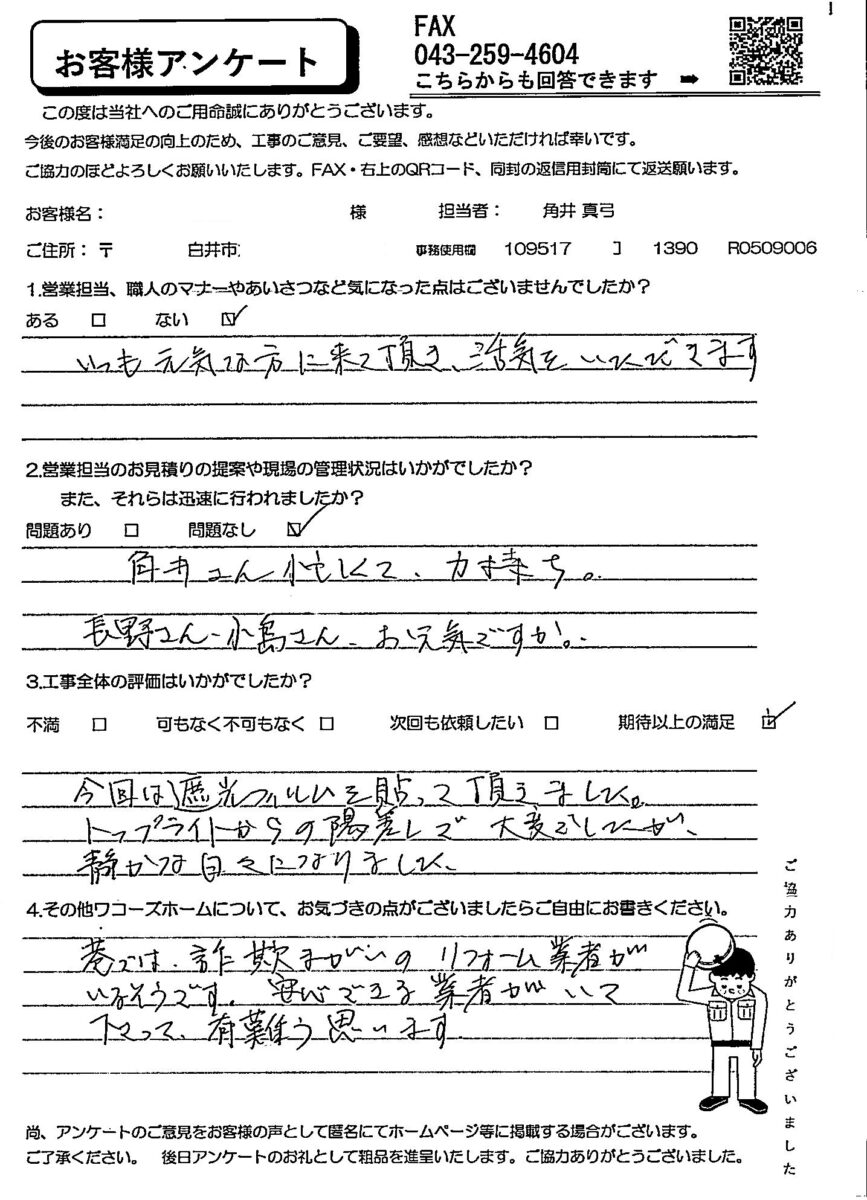 1
お客様アンケート
FAX
043-259-4604
こちらからも回答できます ➡
この度は当社へのご用命誠にありがとうございます。
今後のお客様満足の向上のため、工事のご意見、ご要望、感想などいただければ幸いです。
ご協力のほどよろしくお願いいたします。FAX・右上のQRコード、同封の返信用封筒にて返送願います。
お客様名： 様 担当者： 角井 真弓
ご住所：〒 白井市 事務使用欄 109517 1390 R0509006
1.営業担当、職人のマナーやあいさつなど気になった点はございませんでしたか？
ある □ ない ☑
いつも元気な方に来て頂き、活気をいただきます
2.営業担当のお見積りの提案や現場の管理状況はいかがでしたか？
また、それらは迅速に行われましたか？
問題あり □ 問題なし ☑
角井さん忙しくて、力持ち。
長野さん、小島さん、お元気ですか。
3.工事全体の評価はいかがでしたか？
不満 □ 可もなく不可もなく □ 次回も依頼したい □ 期待以上の満足 ☑
今回は遮光フィルムを貼って頂きました。
トップライトからの陽差しで大変でしたが、
静かな日々になりました、
4.その他ワコーズホームについて、お気づきの点がございましたらご自由にお書きください。
巷では、詐欺まがいのリフォーム業者が
いるそうです。安心できる業者がいて
下さって、有難う思います
ご協力ありがとうございました
尚、アンケートのご意見をお客様の声として匿名にてホームページ等に掲載する場合がございます。
ご了承ください。 後日アンケートのお礼として粗品を進呈いたします。ご協力ありがとうございました。